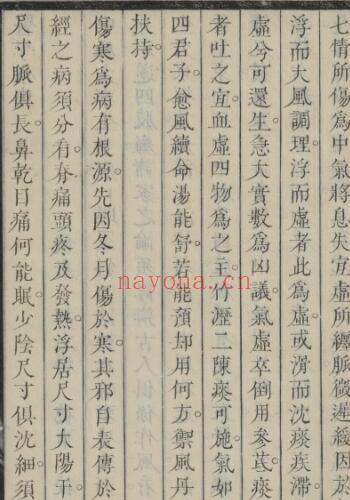 七情所傷為中氣將息失所纏緩因於
浮而大風調理浮而虛者此為虛或滑而沈痰疾滯。
虛兮可還生。急大實數為凶議氣虛卒倒用參芪痰
者吐之宜血虛四物為之主竹瀝二陳痰可施。氣如
四君子愈風續命湯能舒。若能預却用何方。禦風丹
扶持。
傷寒為病有根源。先因冬月傷於寒。其邪自表傳於
經之病須分有。夯痛頭疼及發熱。浮居尺寸大陽干
尺寸脈俱長。鼻乾目痛何能眠。少陰尺寸俱沈細須
nayona.cn